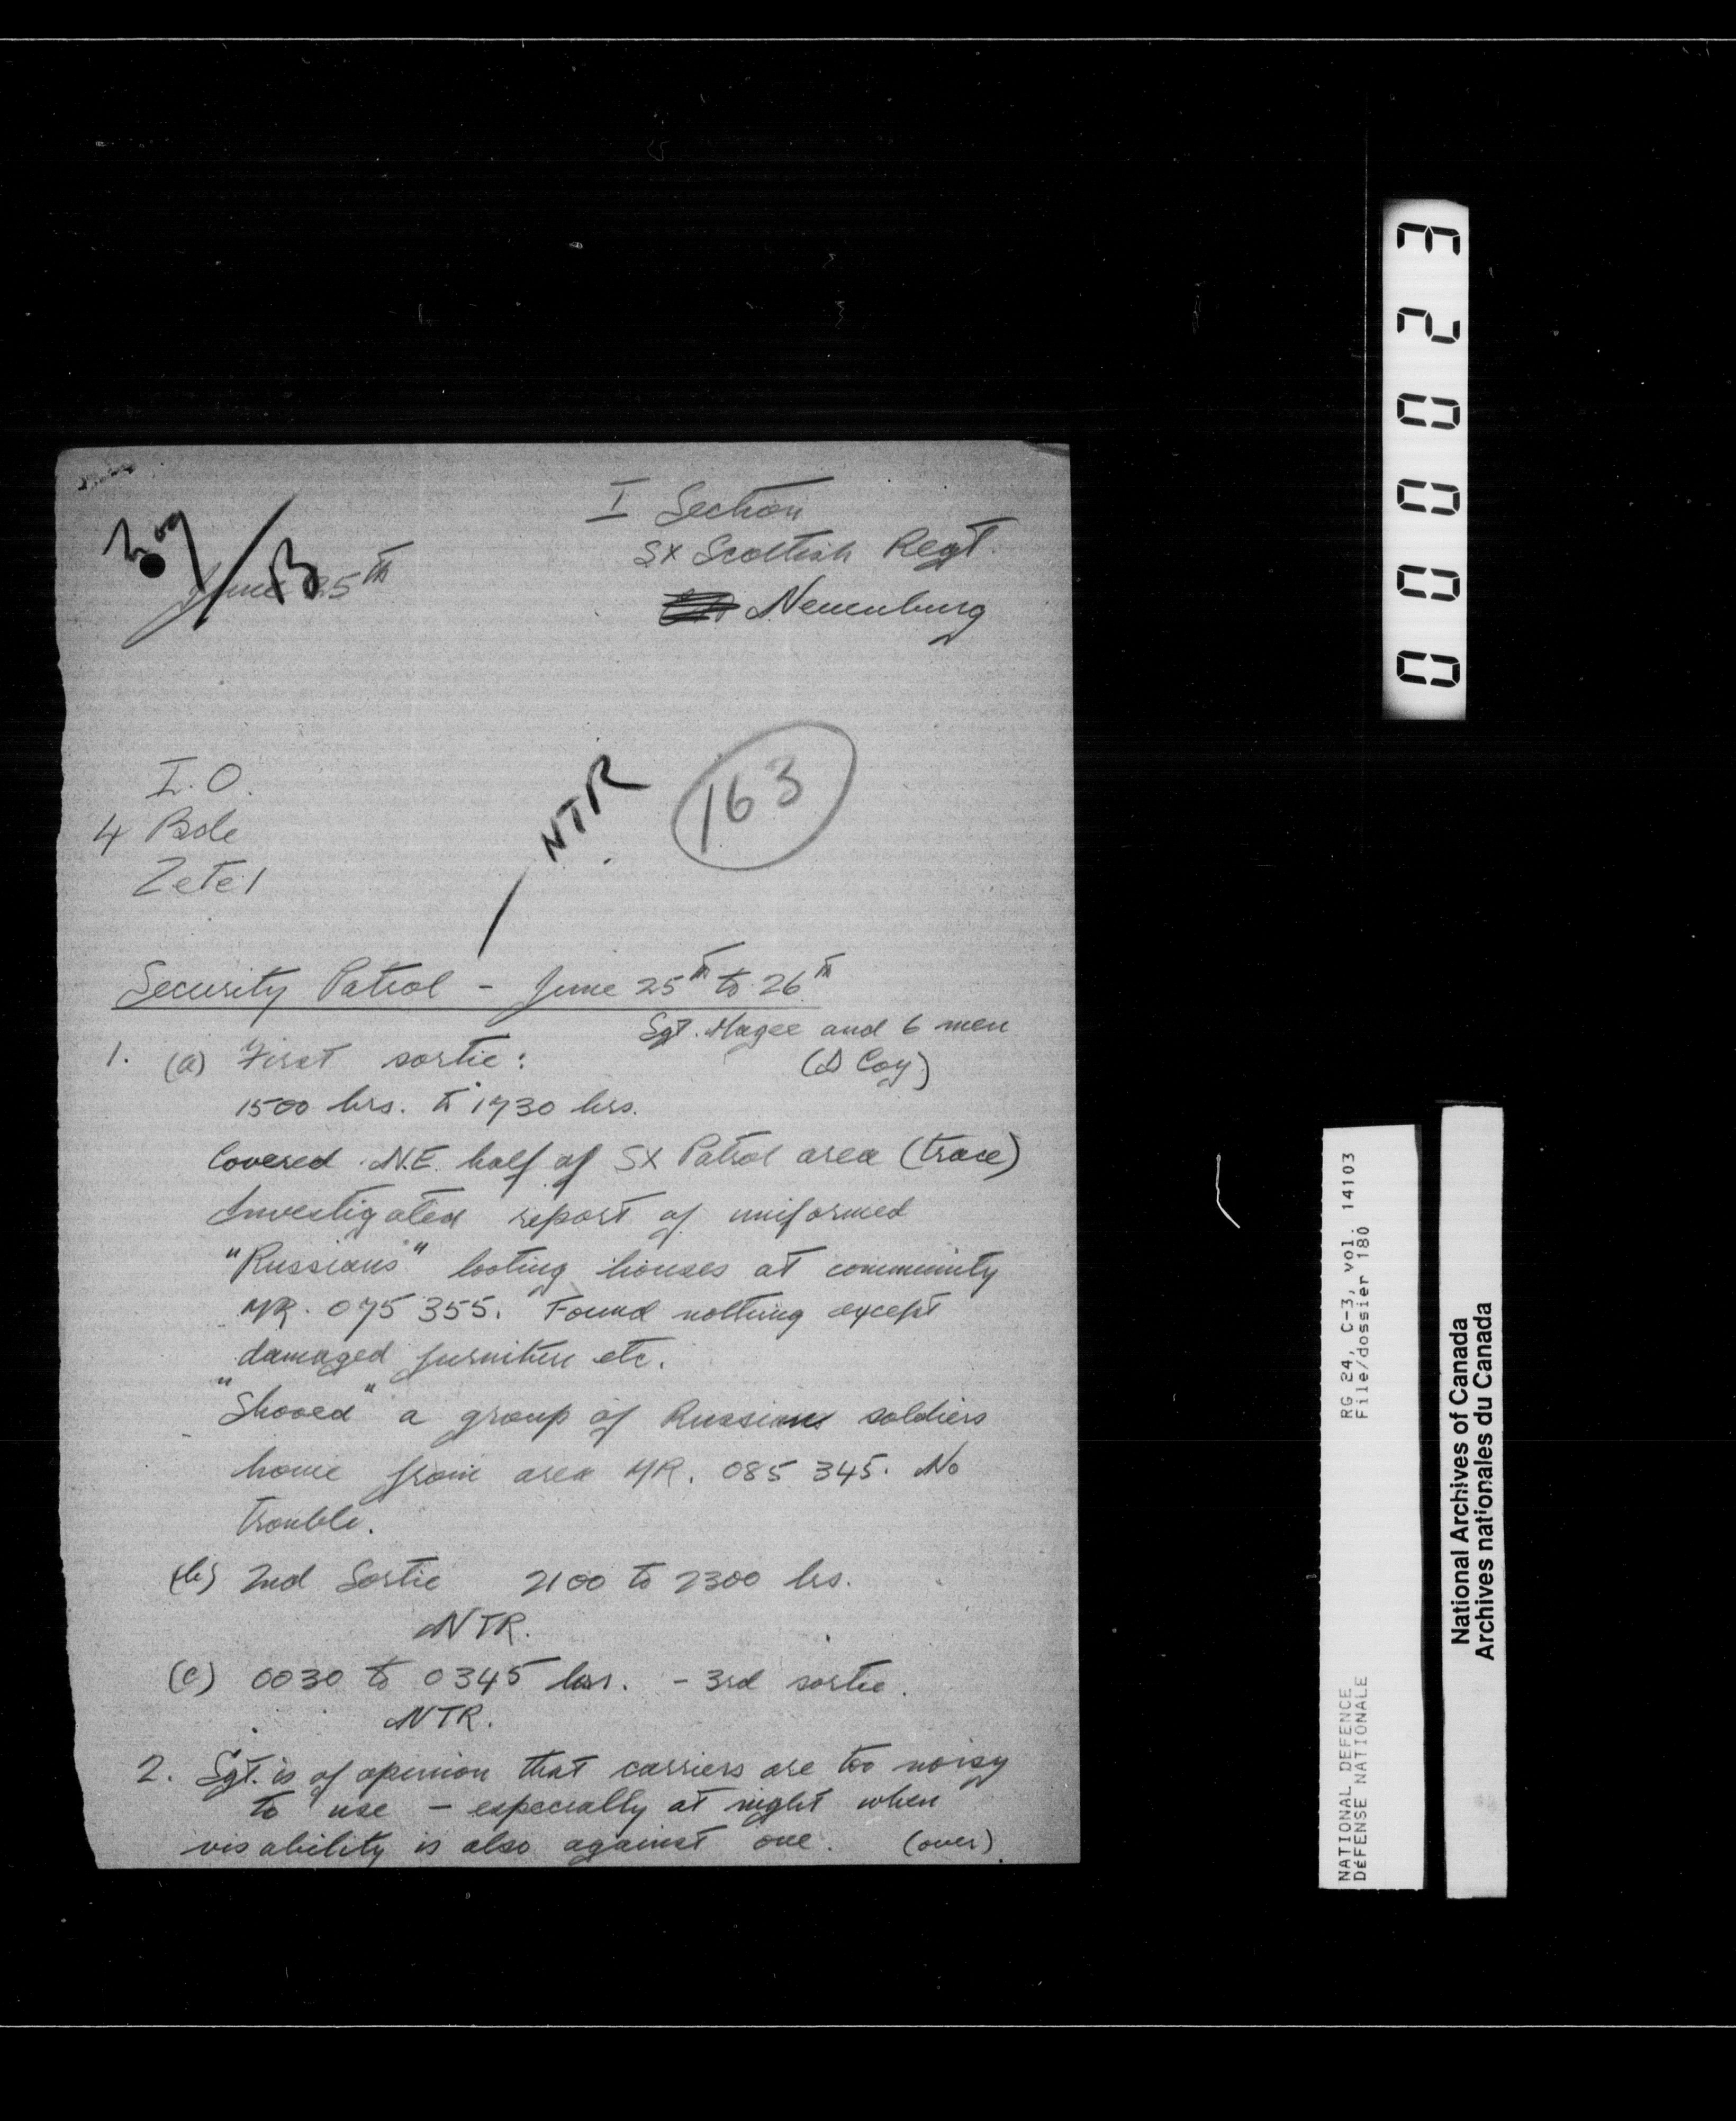 I Section
SX Scottish Regt.
Neuenburg
June 25th
I.O.
4 Bde
Zetel
NTR
163
Security Patrol - June 25th to 26th
Sgt. Magee and 6 men
(D Coy)
1. (a) First sortie:
1500 hrs. to 1730 hrs.
Covered N.E. half of SX Patrol area (trace)
Investigated report of uniformed
"Russians" looting houses at community
MR. 075 355. Found nothing except
damaged furniture etc.
"Shooed" a group of Russians soldiers
home from area MR. 085 345. No
trouble.
(b) 2nd Sortie 2100 to 2300 hrs.
NTR.
(c) 0030 to 0345 hrs. - 3rd sortie.
NTR.
2. Sgt. is of opinion that carriers are too noisy
to use - especially at night when
visability is also against one. (over)
000023
RG 24, C-3, vol. 14103
File/dossier 180
NATIONAL DEFENCE
DÉFENSE NATIONALE
National Archives of Canada
Archives nationales du Canada